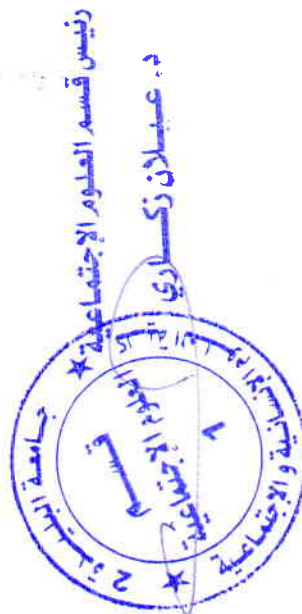 رئيس قسم العلوم الإجتماعية
د. عبلان زكاري
جامعة البليدة 2
كلية العلوم الإنسانية و الإجتماعية
قسم
العلوم الإجتماعية
1